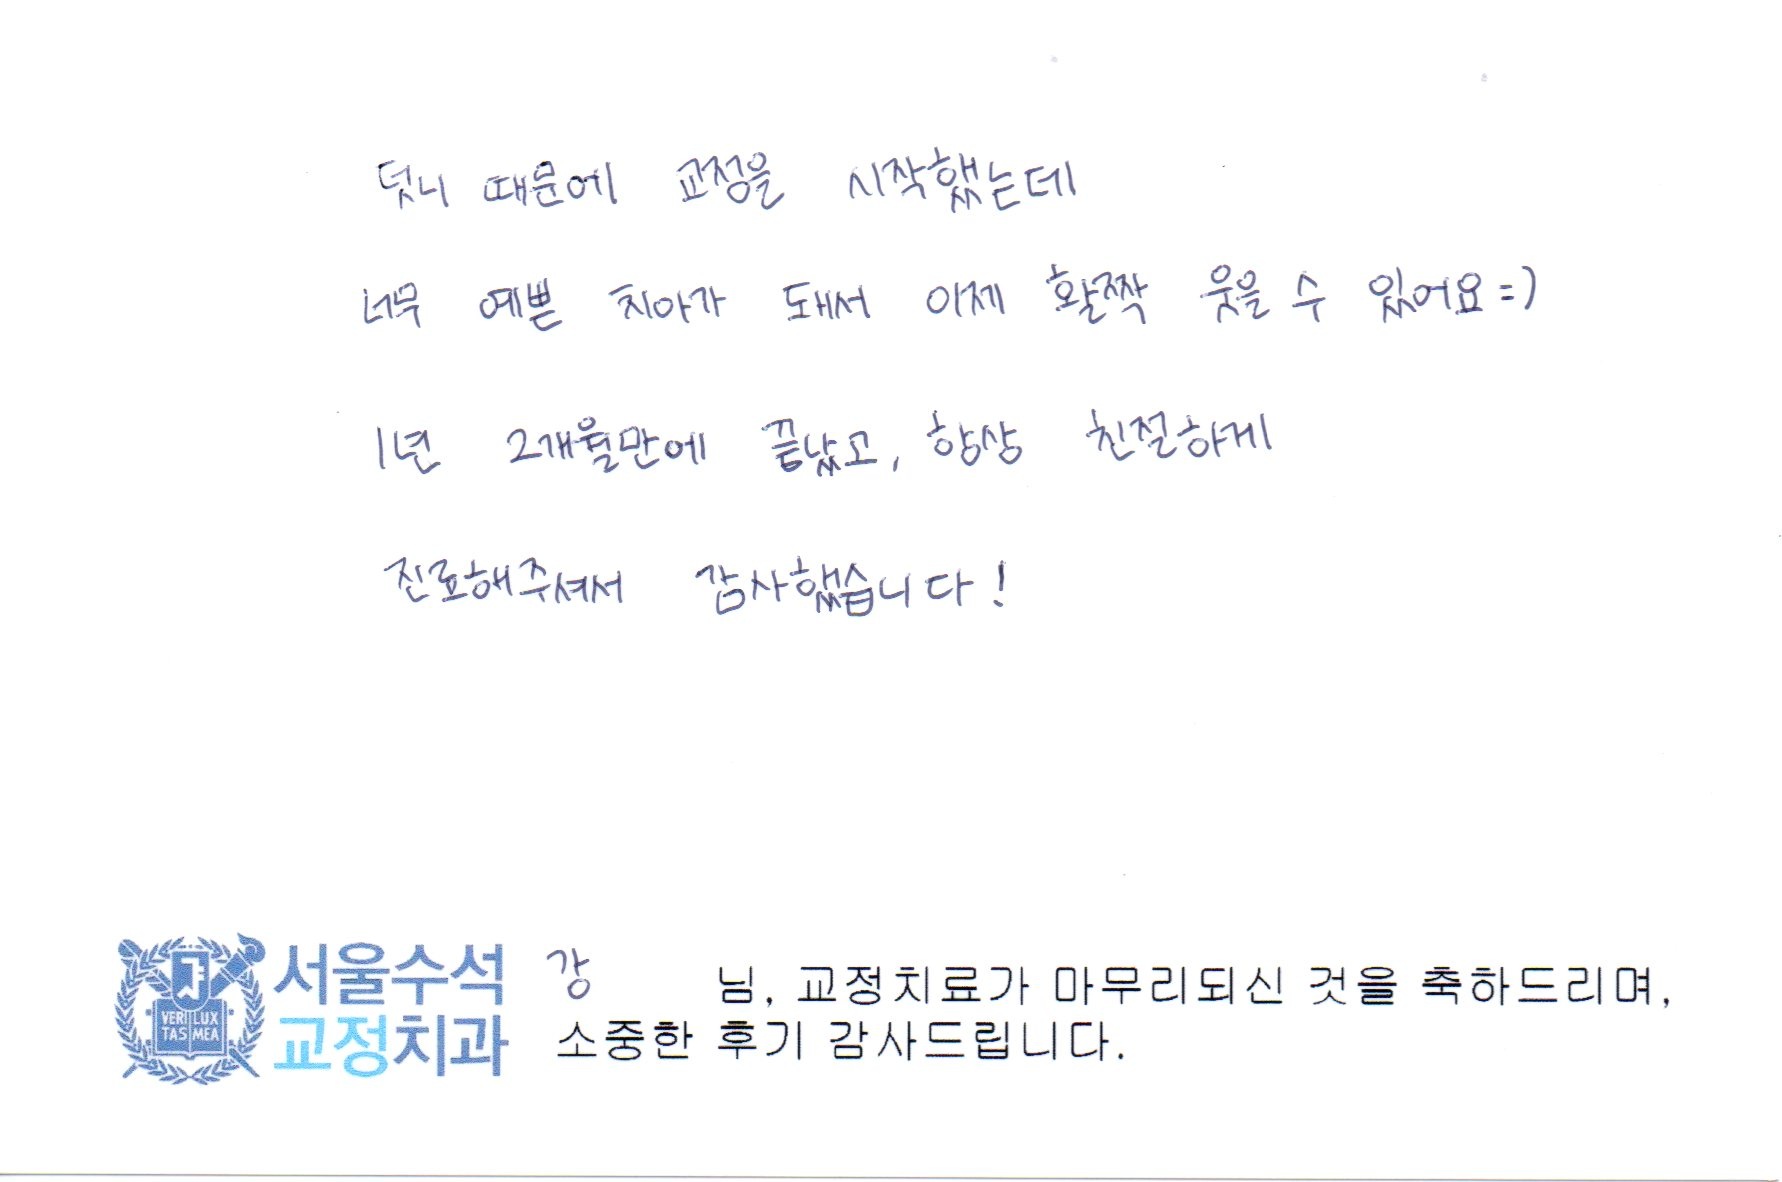 덧니 때문에 교정을 시작했는데
너무 예쁜 치아가 돼서 이제 활짝 웃을 수 있어요=)
1년 2개월만에 끝났고, 항상 친절하게
진료해주셔서 감사했습니다!
VERI LUX
TAS MEA
서울수석
교정치과
강 님, 교정치료가 마무리되신 것을 축하드리며,
소중한 후기 감사드립니다.